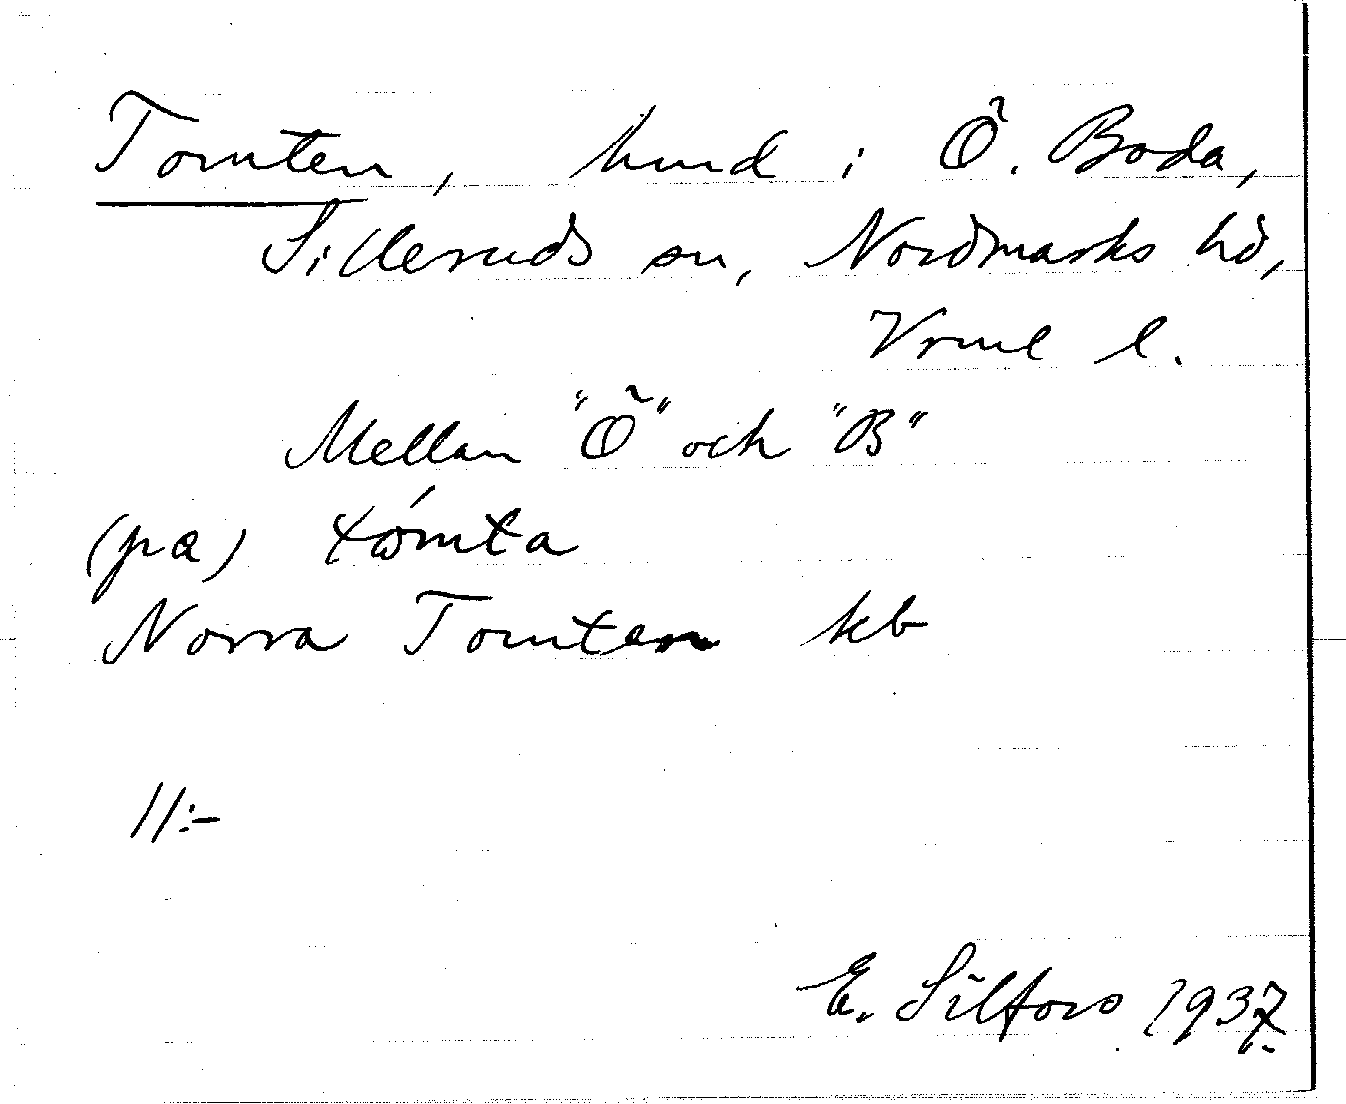 Tomten, hmd i Ö. Boda,
Silleruds sn, Nordmarks hd,
Vrml l.
Mellan "Ö" och "B"
(pa) tómta
Norra Tomten kb
11:-
E. Silfors 1937.